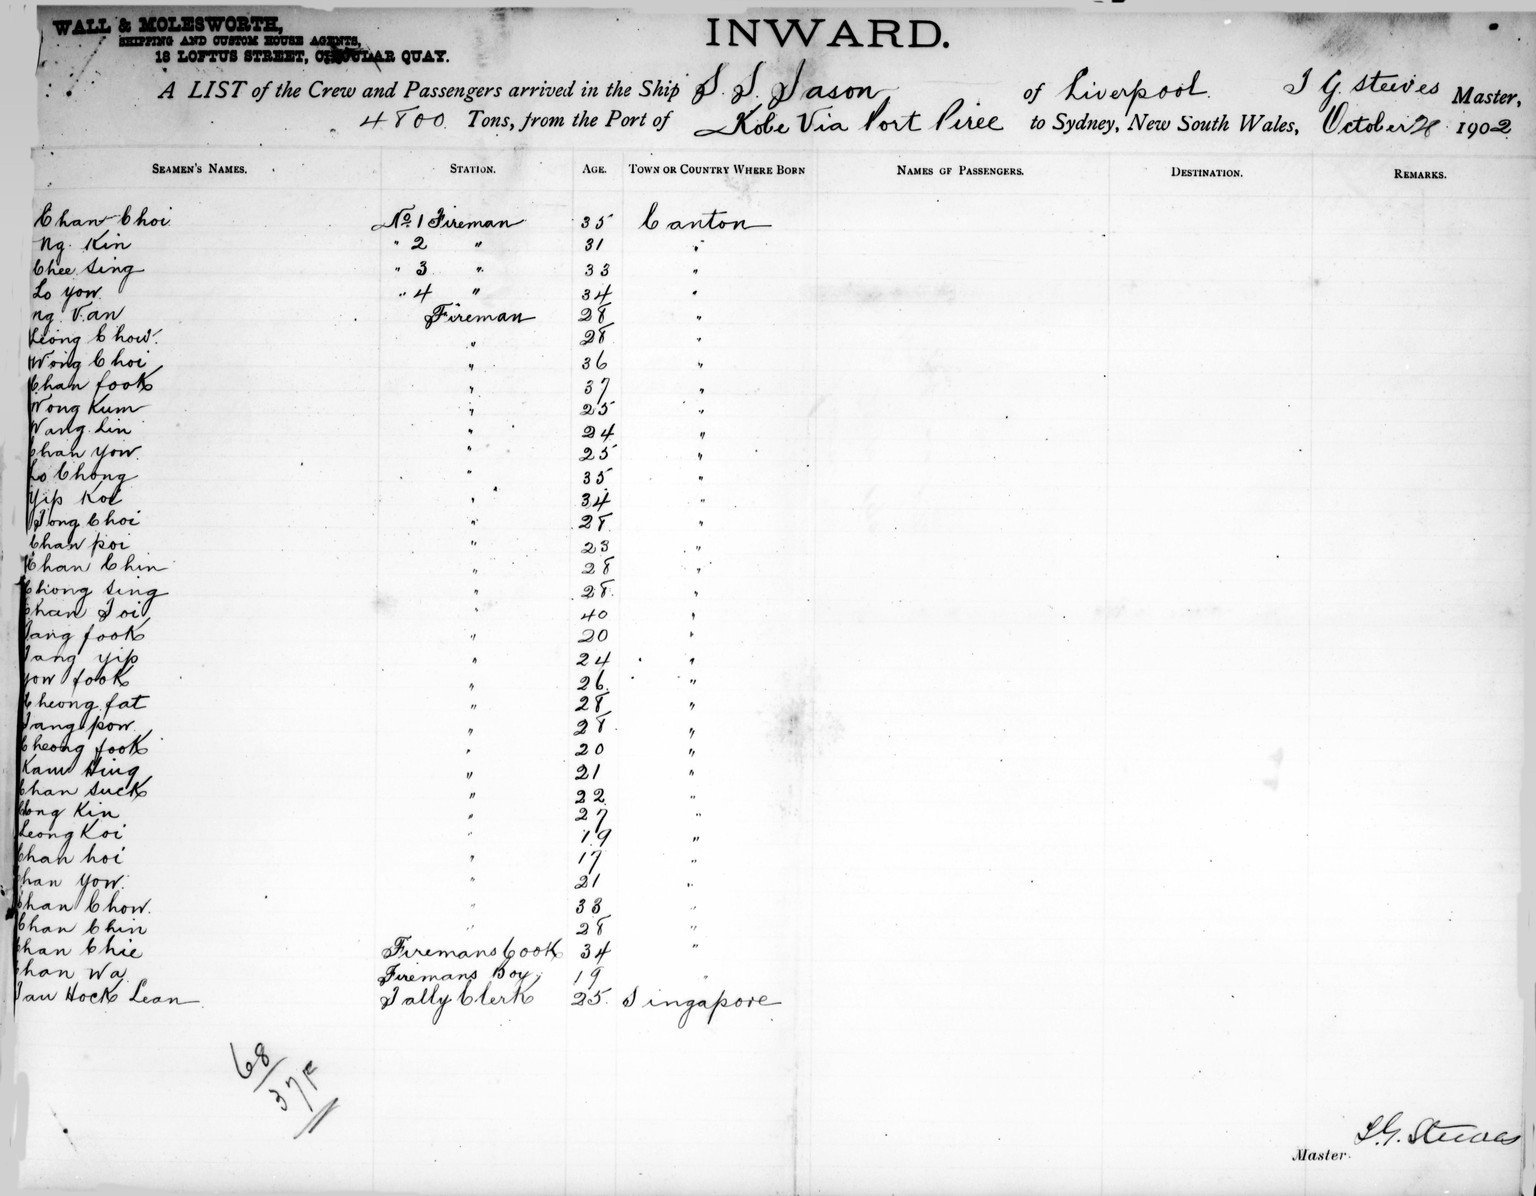 WALL & MOLESWORTH,
SHIPPING AND CUSTOM HOUSE AGENTS,
18 LOFTUS STREET, CIRCULAR QUAY.
INWARD.
A LIST of the Crew and Passengers arrived in the Ship S. S. Jason of Liverpool. T G Steeves Master,
4800 Tons, from the Port of Kobe Via Port Piree to Sydney, New South Wales, October 28 1902
SEAMEN'S NAMES. STATION. AGE. TOWN OR COUNTRY WHERE BORN NAMES OF PASSENGERS. DESTINATION. REMARKS.
Chan Choi No. 1 Fireman 35 Canton
Ng. Kin " 2 " 31 "
Chee Sing " 3 " 33 "
Lo yow " 4 " 34 "
ng. Van Fireman 28 "
Leong Chow " 28 "
Wong Choi " 36 "
Chan fook " 37 "
Wong Kum " 25 "
Wang Lin " 24 "
Chan yow " 25 "
Lo Chong " 35 "
Yip Koi " 34 "
Tong Choi " 28 "
Chan poi " 23 "
Chan Chin " 28 "
Chong Sing " 28 "
Chan Toi " 40 "
Tang fook " 20 "
Tang yip " 24 "
yow fook " 26 "
Cheong fat " 28 "
Tang pow " 28 "
Cheong fook " 20 "
Kam Hing " 21 "
Chan Suck " 22 "
Kin " 27 "
Leong Koi " 19 "
Chan hoi " 17 "
Chan yow " 21 "
Chan Chow " 33 "
Chan Chin " 28 "
Chan Chie Firemans Cook 34 "
Chan Wa Firemans Boy 19 "
Tau Hock Lean Tally Clerk 25 Singapore
68
37F
T.G. Steeves
Master.